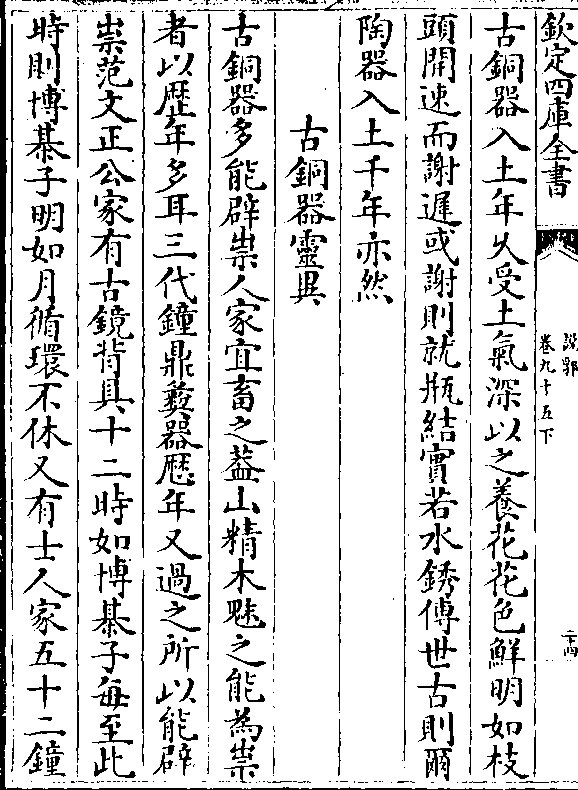 欽定四庫全書
說郛
卷九十五下
二十四
古銅器入土年久受土氣深以之養花花色鮮明如枝
頭開速而謝遲或謝則就瓶結實若水銹傳世古則爾
陶器入土千年亦然
古銅器靈異
古銅器多能辟祟人家宜畜之葢山精木魅之能為祟
者以歴年多耳三代鐘鼎彝器歴年又過之所以能辟
祟范文正公家有古鏡背具十二時如博棊子每至此
時則博棊子明如月循環不休又有士人家五十二鐘